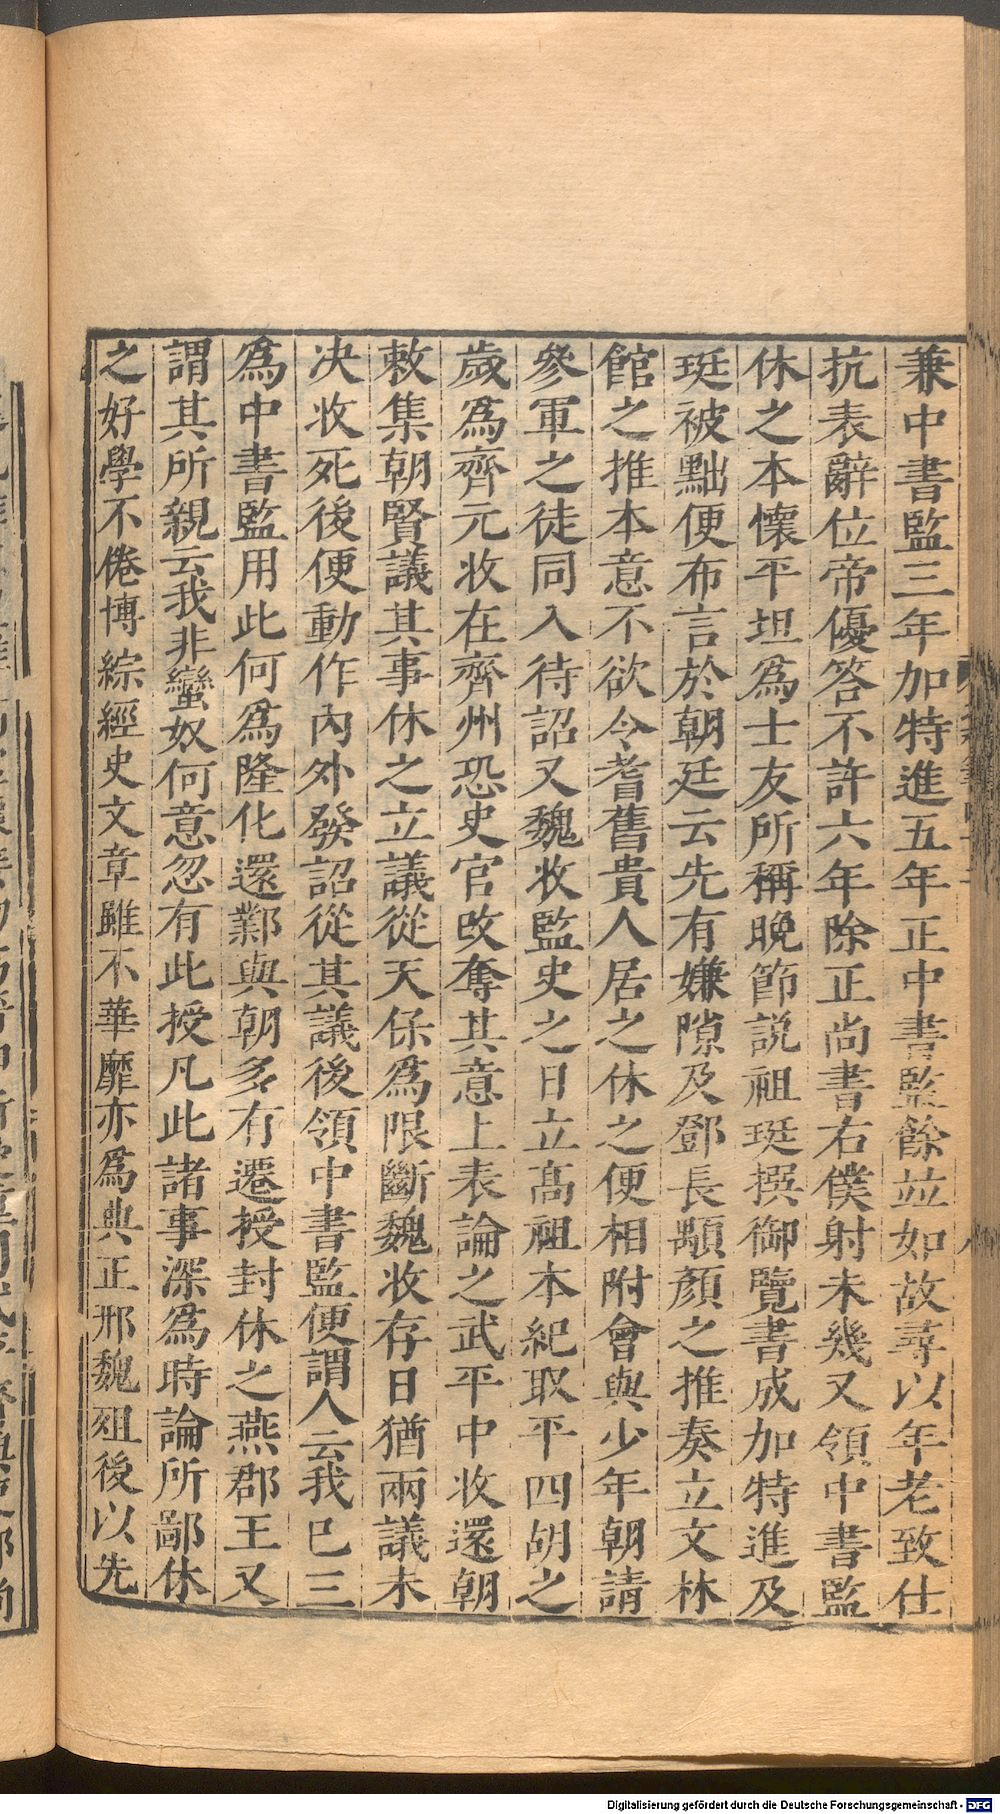 兼中書監三年加特進五年正中書監餘並如故尋以年老致仕
抗表辭位帝優答不許六年除正尚書右僕射未幾又領中書監
休之本懷平坦爲士友所稱晚節説祖珽撰御覽書成加特進及
珽被黜便布言於朝廷云先有嫌隙及鄧長顒顏之推奏立文林
館之推本意不欲令耆舊貴人居之休之便相附會與少年朝請
參軍之徒同入待詔又魏收監史之日立高祖本紀取平四胡之
歲爲齊元收在齊州恐史官改奪其意上表論之武平中收還朝
敕集朝賢議其事休之立議從天保爲限斷魏收存日猶兩議未
决收死後便動作內外發詔從其議後領中書監便謂人云我巳三
爲中書監用此何爲隆化還鄴與朝多有遷授封休之燕郡王又
謂其所親云我非蠻奴何意忽有此授凡此諸事深爲時論所鄙休
之好學不倦博綜經史文章雖不華靡亦爲典正邢魏殂後以先
Digitalisierung gefördert durch die Deutsche Forschungsgemeinschaft - DFG